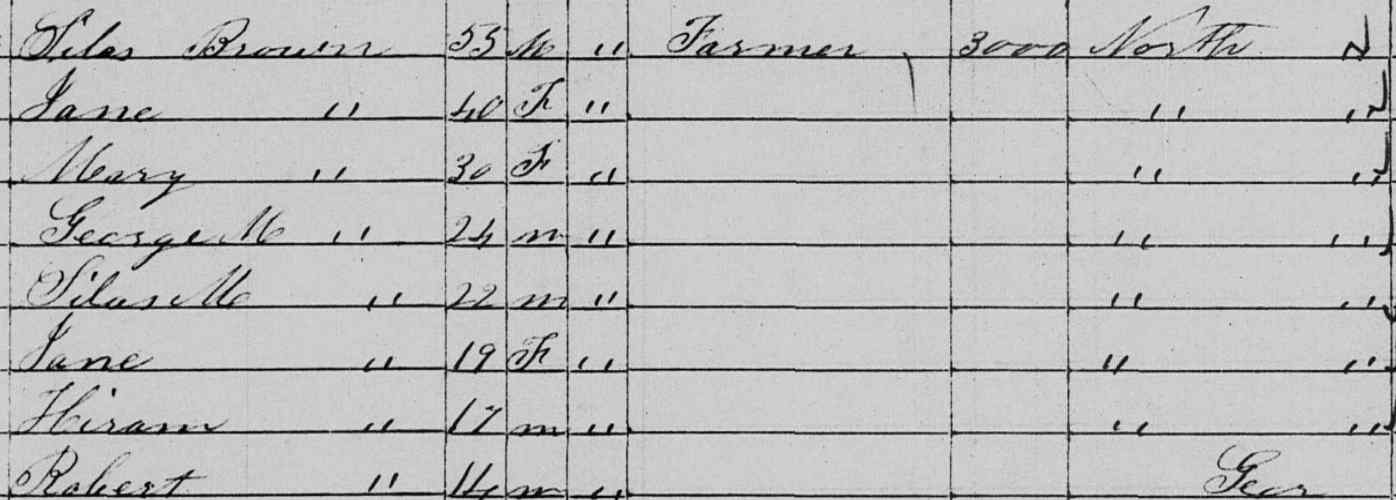 Silas Brown 55 M " Farmer 3000 North
Jane " 40 F " " "
Mary " 30 F " " "
George M " 24 m " " "
Silas M " 22 m " " "
Jane " 19 F " " "
Hiram " 17 m " " "
Robert " 14 m " Geor